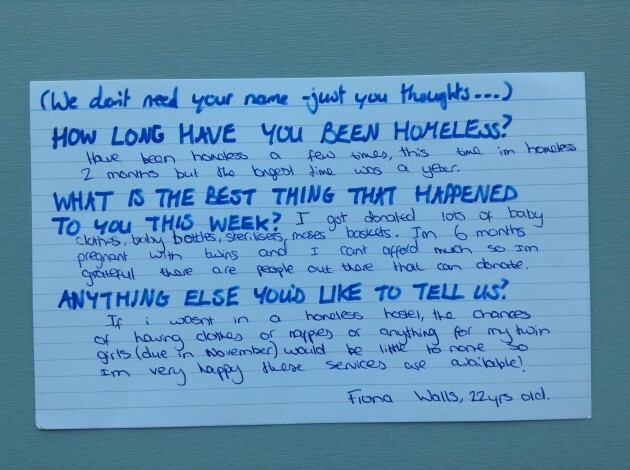 (We don't need your name -just you thoughts...)
HOW LONG HAVE YOU BEEN HOMELESS?
Have been homeless a few times, this time im homeless
2 months but the longest time was a year.
WHAT IS THE BEST THING THAT HAPPENED
TO YOU THIS WEEK? I got donated lots of baby
clothes, baby bottles, sterilisers, moses baskets. Im 6 months
pregnant with twins and I cant afford much so im
grateful there are people out there that can donate.
ANYTHING ELSE YOU'D LIKE TO TELL US?
If i wasnt in a homeless hostel, the chances
of having clothes or nappies or anything for my twin
girls (due in November) would be little to none so
Im very happy these services are available!
Fiona Walls, 22yrs old.